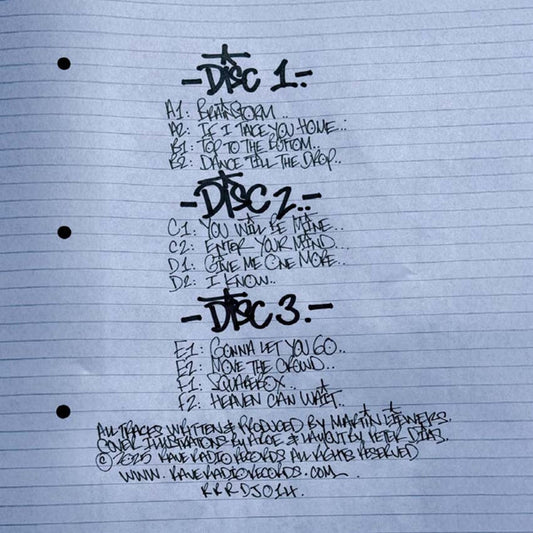 -DISC 1.-
A1: BRAINSTORM..
A2: IF I TAKE YOU HOME..
B1: TOP TO THE BOTTOM..
B2: DANCE TILL THE DROP..
-DISC 2.-
C1: YOU WILL BE MINE..
C2: ENTER YOUR MIND..
D1: GIVE ME ONE MORE..
D2: I KNOW..
-DISC 3.-
E1: GONNA LET YOU GO..
E2: MOVE THE CROWD..
F1: SQUAREBOX..
F2: HEAVEN CAN WAIT..
ALL TRACKS WRITTEN & PRODUCED BY MARTIN LIEWERS.
COVER ILLUSTRATIONS BY & LAYOUT BY PETER
© 2025 RAVERADIO RECORDS ALL RIGHTS RESERVED
WWW.RAVERADIORECORDS.COM.
RRRDJ014.